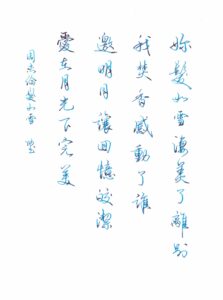 妳髮如雪淒美了離別
我焚香感動了誰
邀明月讓回憶皎潔
愛在月光下完美
周杰倫髮如雪